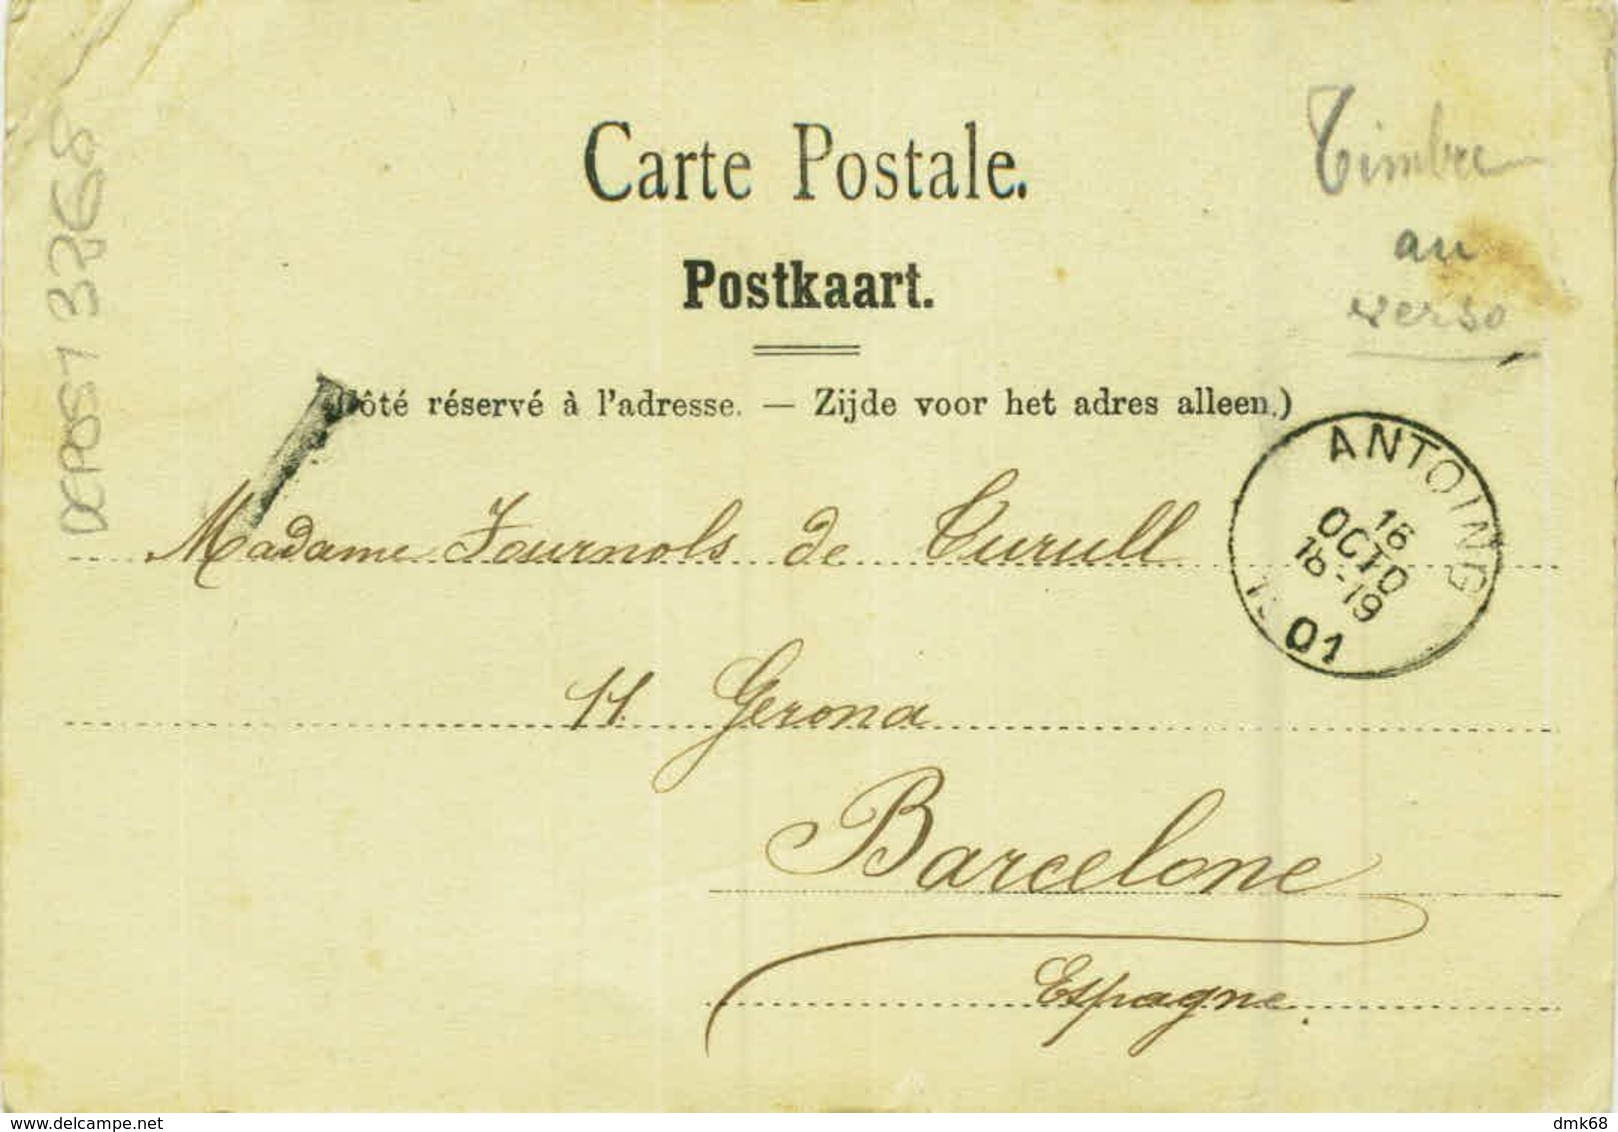 Carte Postale.
Timbre
au
verso
Postkaart.
ôté réservé à l'adresse. — Zijde voor het adres alleen.)
ANTOING
16
OCTO
18-19
01
Madame Fournols de Curull
11 Gerona
Barcelone
Espagne.
3268
delcampe.net
dmk68